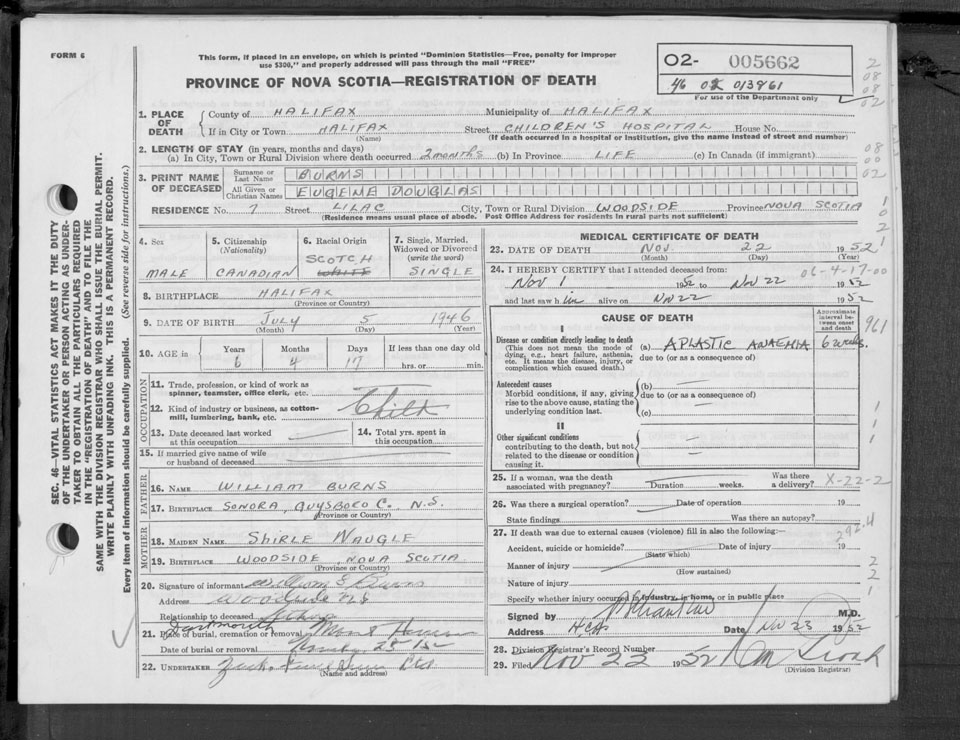 FORM 6
This form, if placed in an envelope, on which is printed "Dominion Statistics—Free, penalty for improper
use $300," and properly addressed will pass through the mail "FREE"
PROVINCE OF NOVA SCOTIA—REGISTRATION OF DEATH
O2- 005662
46 02 013961
For use of the Department only
2
08
08
02
1. PLACE OF DEATH
County of HALIFAX Municipality of HALIFAX
If in City or Town HALIFAX Street CHILDREN'S HOSPITAL House No.
(Name) (If death occurred in a hospital or institution, give the name instead of street and number)
2. LENGTH OF STAY (in years, months and days)
(a) In City, Town or Rural Division where death occurred 2 MONTHS (b) In Province LIFE (c) In Canada (if immigrant)
08
00
02
3. PRINT NAME OF DECEASED
Surname or Last Name BURNS
All Given or Christian Names EUGENE DOUGLAS
RESIDENCE No. 7 Street LILAC City, Town or Rural Division WOODSIDE Province NOVA SCOTIA
(Residence means usual place of abode. Post Office Address for residents in rural parts not sufficient)
1
0
2
1
SEC. 46—VITAL STATISTICS ACT MAKES IT THE DUTY
OF THE UNDERTAKER OR PERSON ACTING AS UNDER-
TAKER TO OBTAIN ALL THE PARTICULARS REQUIRED
IN THE "REGISTRATION OF DEATH" AND TO FILE THE
SAME WITH THE DIVISION REGISTRAR WHO SHALL ISSUE THE BURIAL PERMIT.
WRITE PLAINLY WITH UNFADING INK. THIS IS A PERMANENT RECORD.
Every item of information should be carefully supplied. (See reverse side for instructions.)
4. Sex
MALE
5. Citizenship
(Nationality)
CANADIAN
6. Racial Origin
SCOTCH
WHITE
7. Single, Married,
Widowed or Divorced
(write the word)
SINGLE
8. BIRTHPLACE HALIFAX
(Province or Country)
9. DATE OF BIRTH July 5 1946
(Month) (Day) (Year)
10. AGE in
Years Months Days If less than one day old
6 4 17 hrs. or min.
OCCUPATION
11. Trade, profession, or kind of work as
spinner, teamster, office clerk, etc.
12. Kind of industry or business, as cotton-
mill, lumbering, bank, etc.
Child
13. Date deceased last worked
at this occupation
14. Total yrs. spent in
this occupation
15. If married give name of wife
or husband of deceased
FATHER
16. NAME WILLIAM BURNS
17. BIRTHPLACE SONORA, GUYSBORO C. N.S.
(Province or Country)
MOTHER
18. MAIDEN NAME SHIRLE NAUGLE
19. BIRTHPLACE WOODSIDE, NOVA SCOTIA
(Province or Country)
20. Signature of informant William Burns
Address Woodside NS
Relationship to deceased Father
Dartmouth
21. Place of burial, cremation or removal Mount Hermon
Date of burial or removal 25 / 52
22. UNDERTAKER
(Name and address)
MEDICAL CERTIFICATE OF DEATH
23. DATE OF DEATH Nov. 22 1952
(Month) (Day)
24. I HEREBY CERTIFY that I attended deceased from: 06-4-17-00
Nov 1 1952 to Nov 22 1952
and last saw him alive on Nov 22 1952
CAUSE OF DEATH
Approximate interval between onset and death
I
Disease or condition directly leading to death
(This does not mean the mode of
dying, e.g., heart failure, asthenia,
etc. It means the disease, injury, or
complication which caused death.)
(a) APLASTIC ANAEMIA 6 weeks.
due to (or as a consequence of)
961
Antecedent causes
Morbid conditions, if any, giving
rise to the above cause, stating the
underlying condition last.
(b) —
due to (or as a consequence of)
(c) —
II
Other significant conditions
contributing to the death, but not
related to the disease or condition
causing it.
1
1
1
25. If a woman, was the death
associated with pregnancy? Duration weeks. Was there
a delivery?
X-22-2
26. Was there a surgical operation? Date of operation 19
State findings Was there an autopsy?
292.4
27. If death was due to external causes (violence) fill in also the following:
Accident, suicide or homicide? Date of injury 19
(State which)
Manner of injury
(How sustained)
Nature of injury
Specify whether injury occurred in industry, in home, or in public place
2
2
1
Signed by M.D.
Address HCH Date Nov 23 1952
28. Division Registrar's Record Number
29. Filed Nov 22 1952
(Division Registrar)